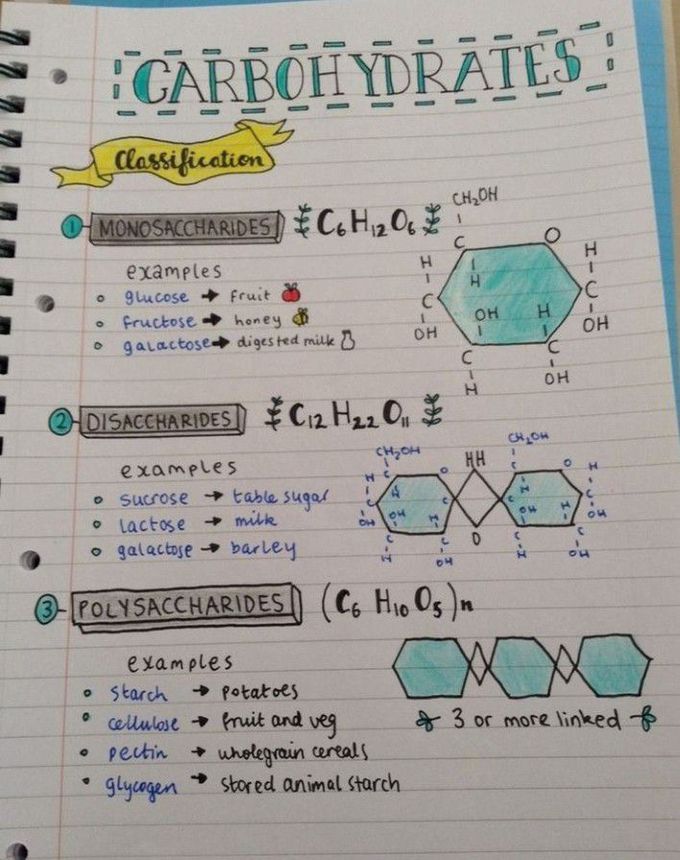 CARBOHYDRATES
Classification
1 MONOSACCHARIDES C₆H₁₂O₆
examples
glucose → fruit
fructose → honey
galactose → digested milk
CH₂OH
C O
H H H
C C
OH OH H OH
C C
H OH
2 DISACCHARIDES C₁₂H₂₂O₁₁
examples
sucrose → table sugar
lactose → milk
galactose → barley
CH₂OH HH CH₂OH
H C O C O H
C H H C
OH OH H OH H OH
C C O C C
H OH H OH
3 POLYSACCHARIDES (C₆ H₁₀ O₅)n
examples
starch → potatoes
cellulose → fruit and veg
pectin → wholegrain cereals
glycogen → stored animal starch
3 or more linked